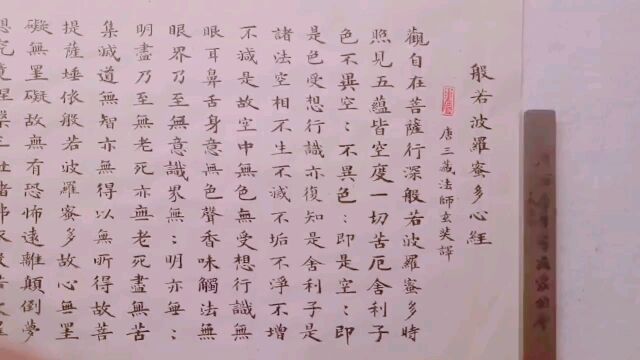 般若波羅蜜多心経
唐三藏法師玄奘譯
觀自在菩薩行深般若波羅蜜多時
照見五蘊皆空度一切苦厄舍利子
色不異空：不異色：即是空：即
是色受想行識亦復如是舍利子是
諸法空相不生不滅不垢不淨不增
不減是故空中無色無受想行識無
眼耳鼻舌身意無色聲香味觸法無
眼界乃至無意識界無：明亦無：
明盡乃至無老死亦無老死盡無苦
集滅道無智亦無得以無所得故菩
提薩埵依般若波羅蜜多故心無罣
礙無罣礙故無有恐怖遠離顛倒夢